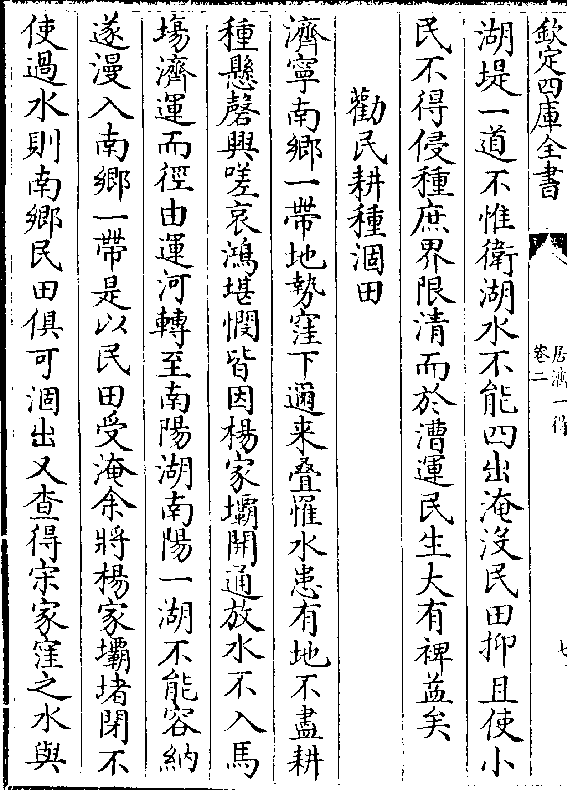 欽定四庫全書
居濟一得
卷二
七
湖堤一道不惟衛湖水不能四出淹沒民田抑且使小
民不得侵種庶界限清而於漕運民生大有裨益矣
勸民耕種涸田
濟寧南鄉一帶地勢窪下邇来叠罹水患有地不盡耕
種懸磬興嗟哀鴻堪憫皆因楊家壩開通放水不入馬
塲濟運而徑由運河轉至南陽湖南陽一湖不能容納
遂漫入南鄉一帶是以民田受淹余將楊家壩堵閉不
使過水則南鄉民田俱可涸出又查得宋家窪之水與